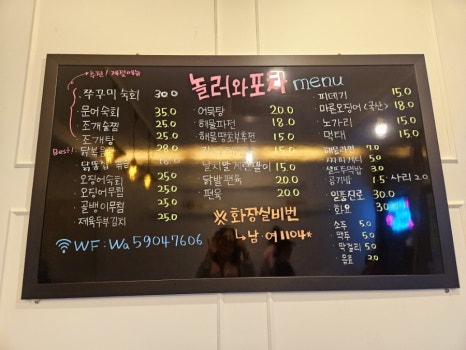 놀러와포차 menu
주꾸미숙회 30.0
문어숙회 35.0
조개술찜 35.0
조개탕 25.0
Best!
28.0
오징어숙회 25.0
오징어무침 25.0
골뱅이무침 25.0
제육두부김치 25.0
WF: Wa59047606
어묵탕 20.0
해물파전 18.0
해물땡초부추전 15.0
15.0
닭발편육 20.0
편육 20.0
※화장실비번
↳남 여1104*
피데기 15.0
마른오징어<국산> 18.0
노가리 15.0
먹태 15.0
7.0
5.0
셀프주먹밥 3.0
공기밥 1.5 사리 2.0
일품진로 30.0
화요 30.0
소주 5.0
맥주 5.0
막걸리 5.0
음료 2.0